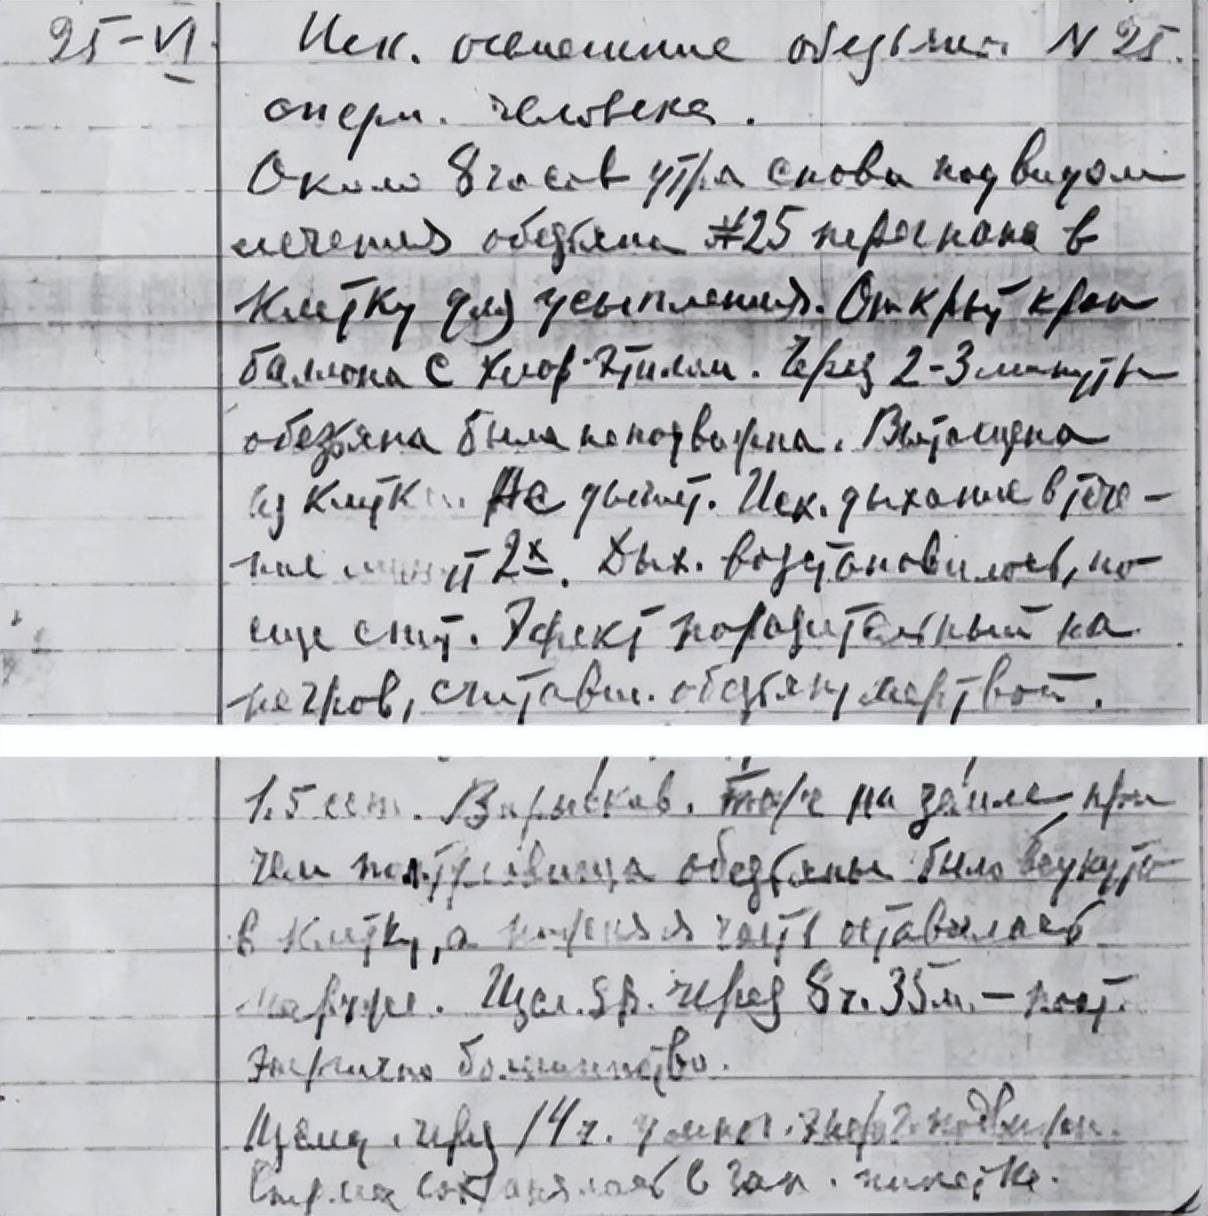 25-VI. Иск. осеменение обезьян. N 25.
сперм. человека.
Около 8 часов утра снова под видом
лечения обезьяна #25 перегнана в
клетку для усыпления. Открыт кран
баллона с хлор-этилом. Через 2-3 минуты
обезьяна была неподвижна. Вытащена
из клетки. Не дышит. Иск. дыхание в тече-
ние минут 2х. Дых. возстановилось, но
еще спит. Эфект поразительный на
негров, считавш. обезьяну мертвой.
1.5 сст. Впрыскив. на земле при
чем пол туловища обезьяны было всунуто
в клетку, а нижняя часть оставалась
наружи. через 8 ч. 35 м. –
энергично большинство.
через 14 ч.
Сперма сохранялась в зап. пипетке.